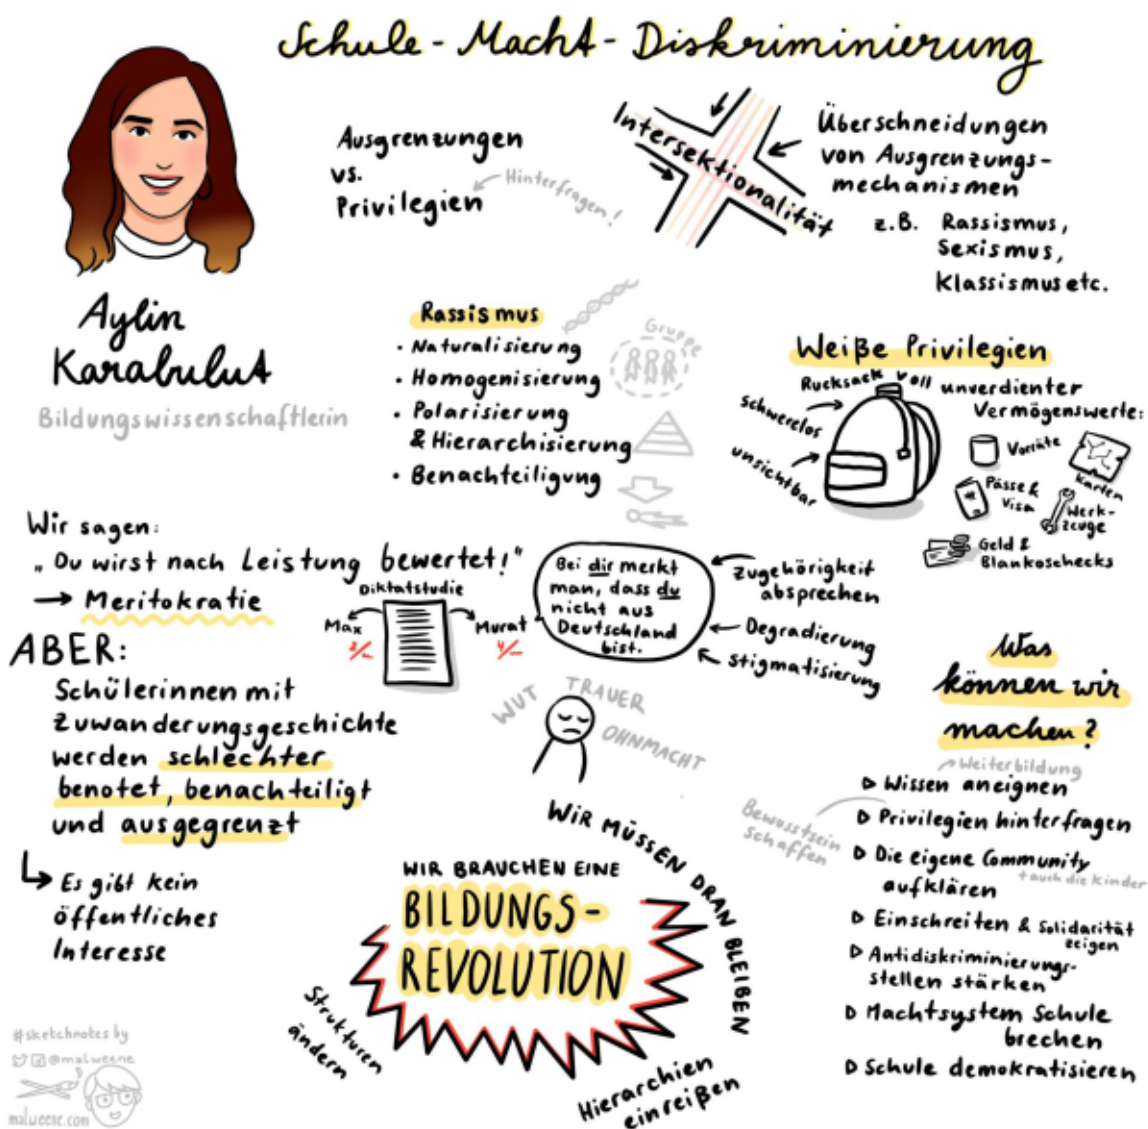 Schule - Macht - Diskriminierung
Aylin
Karabulut
Bildungswissenschaftlerin
Ausgrenzungen
vs.
Privilegien
Hinterfragen!
Intersektionalität
Überschneidungen
von Ausgrenzungs-
mechanismen
z.B. Rassismus,
Sexismus,
Klassismus etc.
Rassismus
• Naturalisierung
• Homogenisierung
• Polarisierung
& Hierarchisierung
• Benachteiligung
Gruppe
Weiße Privilegien
Rucksack voll unverdienter
Vermögenswerte:
Schwerelos
unsichtbar
Vorräte
Karten
Pässe &
Visa
Werk-
zeuge
Geld &
Blankoschecks
Wir sagen:
„Du wirst nach Leistung bewertet!"
→ Meritokratie
Diktatstudie
Max
3/-
Murat
4/-
Bei dir merkt
man, dass du
nicht aus
Deutschland
bist.
Zugehörigkeit
absprechen
Degradierung
Stigmatisierung
WUT TRAUER
OHNMACHT
ABER:
Schülerinnen mit
Zuwanderungsgeschichte
werden schlechter
benotet, benachteiligt
und ausgegrenzt
Es gibt kein
öffentliches
Interesse
WIR MÜSSEN DRAN BLEIBEN
WIR BRAUCHEN EINE
BILDUNGS-
REVOLUTION
Strukturen
ändern
Hierarchien
einreißen
Was
können wir
machen?
Weiterbildung
▷ Wissen aneignen
▷ Privilegien hinterfragen
Bewusstsein
schaffen
▷ Die eigene Community
aufklären
+ auch die Kinder
▷ Einschreiten & Solidarität
zeigen
▷ Antidiskriminierungs-
stellen stärken
▷ Machtsystem Schule
brechen
▷ Schule demokratisieren
#sketchnotes by
@malweene
malweene.com